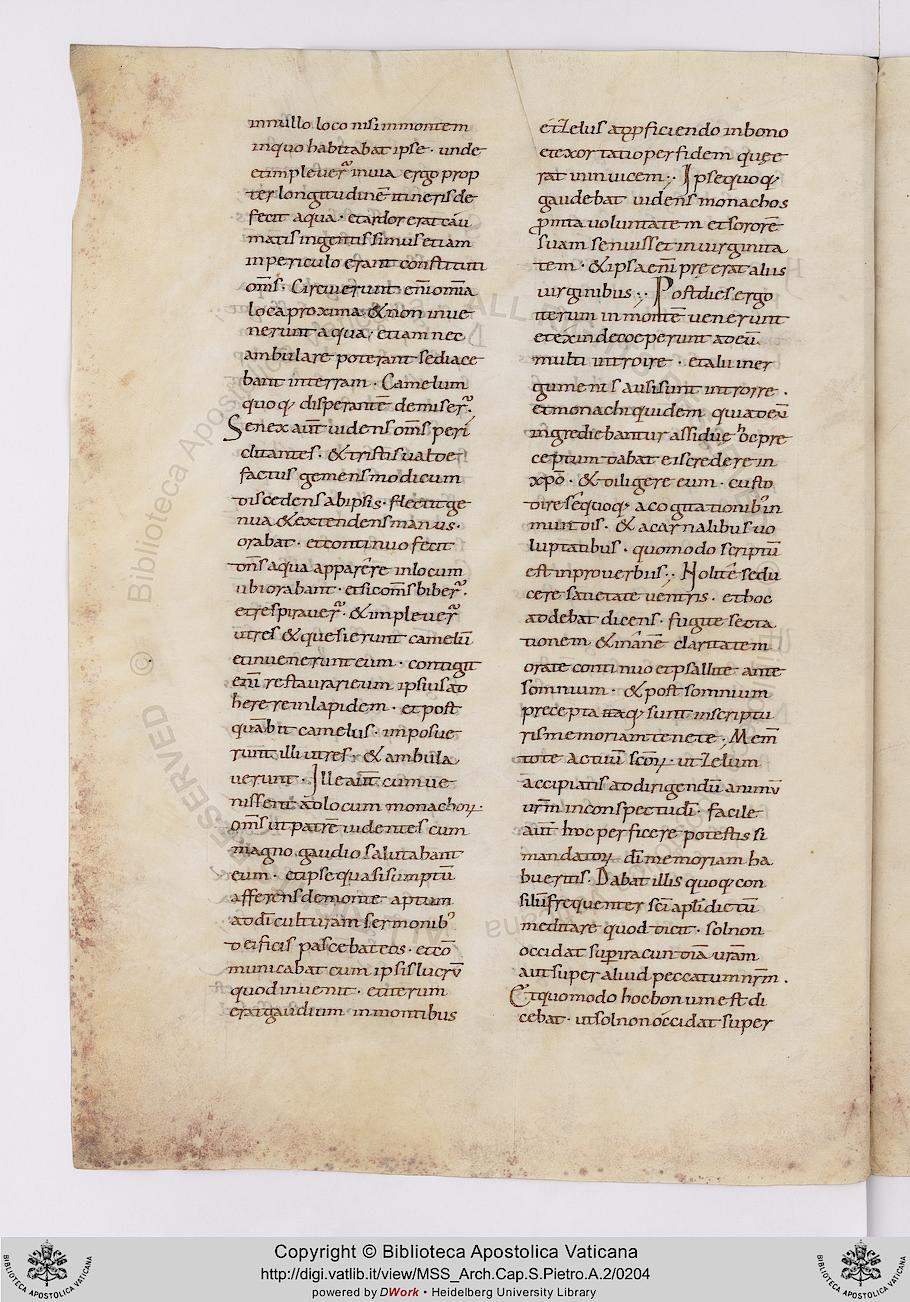 innullo loco nisi inmontem
inquo habitabat ipse · unde
etimpleuer̃ inuia ergo prop
ter longitudinẽ itineris de
fecit aqua · etardor erat cãu
matis ingentissimus etiam
inpericulo erant constituti
om̃s · Circuierunt eñi om̃ia
loca proxima & non inue
nerunt aqua · etiam nec
ambulare poterant sediace
bant interram · Camelum
quoq; disperantẽ demiser̃ ·
Senex aut̃ uidens om̃s peri
clitantes · & tristis ualde
factus gemens modicum
discedens abipsis · flectit ge
nua & extendens manus ·
orabat · et continuo fecit
dñs aqua apparẽre inlocum
ubi orabant · et sic om̃s biber̃ ·
et respirauer̃ · & impleuer̃
utres & quesierunt camelũ
etinuenerunt eum · contigit
eñi restaurarieum ipsius ad
here re inlapidem · et post
quã bit camelus · imposue
runt illi utres · & ambula
uerunt · Ille aut̃ cum ue
nissent ad locum monachoꝝ ·
om̃s ut patrẽ uidentes cum
magno gaudio salutabant
eum · et ipse quasi sumptũ
afferens demonte aptum
ad dĩ culturam sermonib;
deificis pascebat eos · et cõ
municabat cum ipsis lucrũ
quod inuenit · et iterum
erat gaudium in montibus
et zelus a ꝓficiendo inbono
etexortatio per fidem quę e
rat inin uicem ·: Ipse quoq;
gaudebat uidens monachos
ꝓmta uoluntatem et sororẽ
suam senuisset inuirginita
tem · & ipsa eñi pre erat aliis
uirginibus ·: Post dies ergo
iterum in montẽ uenerunt
etexinde coeperunt ad eũ
multi introire · et alii ner
gumenis ausi sunt introrre ·
et monachi quidem quia deũ
ingrediebantur assidue hoc pre
ceptum dabat eis credere in
xp̃o · & diligere eum · custo
dire sẽ quoq; a cogitationib; in
mundis · & a carnalibus uo
luptatibus · quomodo scriptũ
est inprouerbiis ·: Nolite sedu
cere satietate uentris · et hoc
addebat dicens · fugite secta
tionem & inanẽ claritatem
orate continuo et psallite ante
somnium · & post somnium
precepta itaq; sunt inscriptu
ris memoriam tenete · Mem̃
tote actuũ sc̃oꝝ · ut zelum
accipiatis ad dirigendũ animũ
ur̃m inconspectu dĩ · facile
aut̃ hoc perficere potestis si
mandatoꝝ dĩ memoriam ha
bueritis. Dabat illis quoq; con
silius frequenter sc̃i apl̃i dictũ
meditare quod dicit · sol non
occidat supiracundia ur̃am
aut super aliud peccatum nr̃m ·
Et quomodo hoc bonum est di
cebat · ut sol non occidat super
Copyright © Biblioteca Apostolica Vaticana
http://digi.vatlib.it/view/MSS_Arch.Cap.S.Pietro.A.2/0204
powered by DWork • Heidelberg University Library